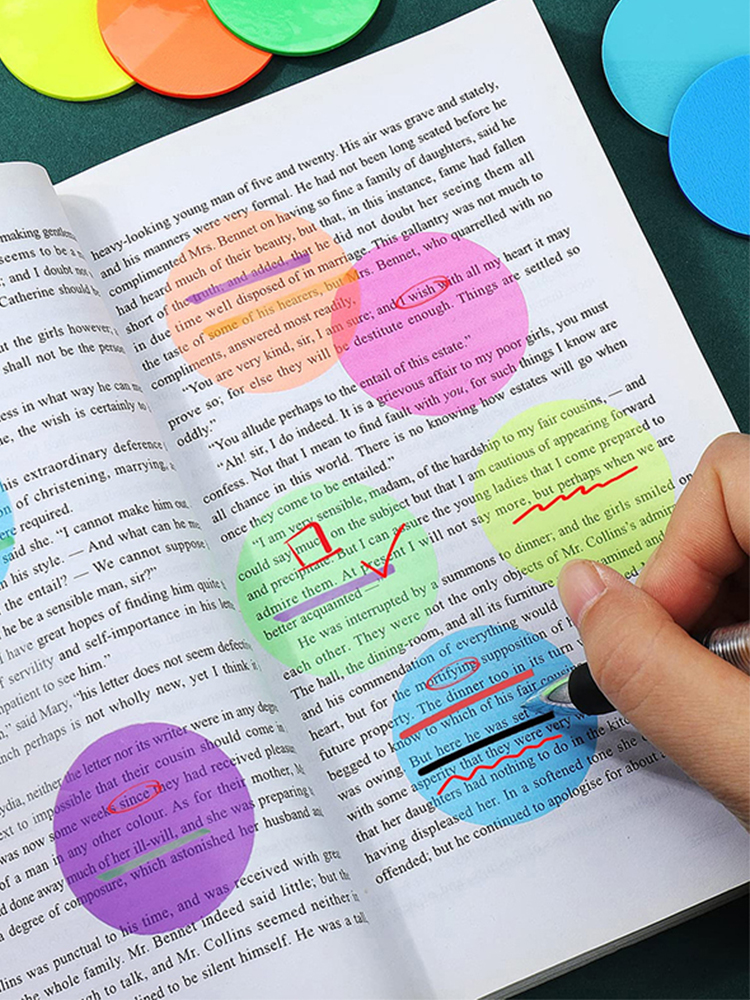 making gentlem
seems to be a
; and I doubt not
Catherine should b
ut the girls however,
shall not be the person
ess in what way he can m
he, the wish is certainly to
his extraordinary deference
n of christening, marrying, a
ere required.
said she. "I cannot make him out.
n his style. — And what can he me
the entail? — We cannot suppose
he be a sensible man, sir?"
I have great hopes of finding him quite t
of servility and self-importance in his lette
mpatient to see him."
n," said Mary, "his letter does not seem defect
nch perhaps is not wholly new, yet I think it
ydia, neither the letter nor its writer were in any degr
ext to impossible that their cousin should come in
was now some weeks since they had received pleasu
of a man in any other colour. As for their mother, M
d done away much of her ill-will, and she was preparing
a degree of composure, which astonished her husband an
llins was punctual to his time, and was received with grea
the whole family. Mr. Bennet indeed said little; but the
gh to talk, and Mr. Collins seemed neither in
clined to be silent himself. He was a tall,
heavy-looking young man of five and twenty. His air was grave and stately,
and his manners were very formal. He had not been long seated before he
complimented Mrs. Bennet on having so fine a family of daughters, said he
had heard much of their beauty, but that, in this instance, fame had fallen
short of the truth; and added, that he did not doubt her seeing them all
in due time well disposed of in marriage. This gallantry was not much to
the taste of some of his hearers, but Mrs. Bennet, who quarrelled with no
compliments, answered most readily,
"You are very kind, sir, I am sure; and I wish with all my heart it may
prove so; for else they will be destitute enough. Things are settled so
oddly."
"You allude perhaps to the entail of this estate."
"Ah! sir, I do indeed. It is a grievous affair to my poor girls, you must
confess. Not that I mean to find fault with you, for such things I know are
all chance in this world. There is no knowing how estates will go when
once they come to be entailed."
"I am very sensible, madam, of the hardship to my fair cousins, — and
could say much on the subject but that I am cautious of appearing forward
and precipitate. But I can assure the young ladies that I come prepared to
admire them. At present I will not say more, but perhaps when we are
better acquainted —
He was interrupted by a summons to dinner; and the girls smiled on
each other. They were not the only objects of Mr. Collins's admir
The hall, the dining-room, and all its furniture examined and
and his commendation of everything would
heart, but for the mortifying supposition of
future property. The dinner too in its turn
begged to know to which of his fair
was owing. But here he was set
with some asperity that they were very w
that her daughters had nothing to do in the kitc
having displeased her. In a softened tone she
offended; but he continued to apologise for about